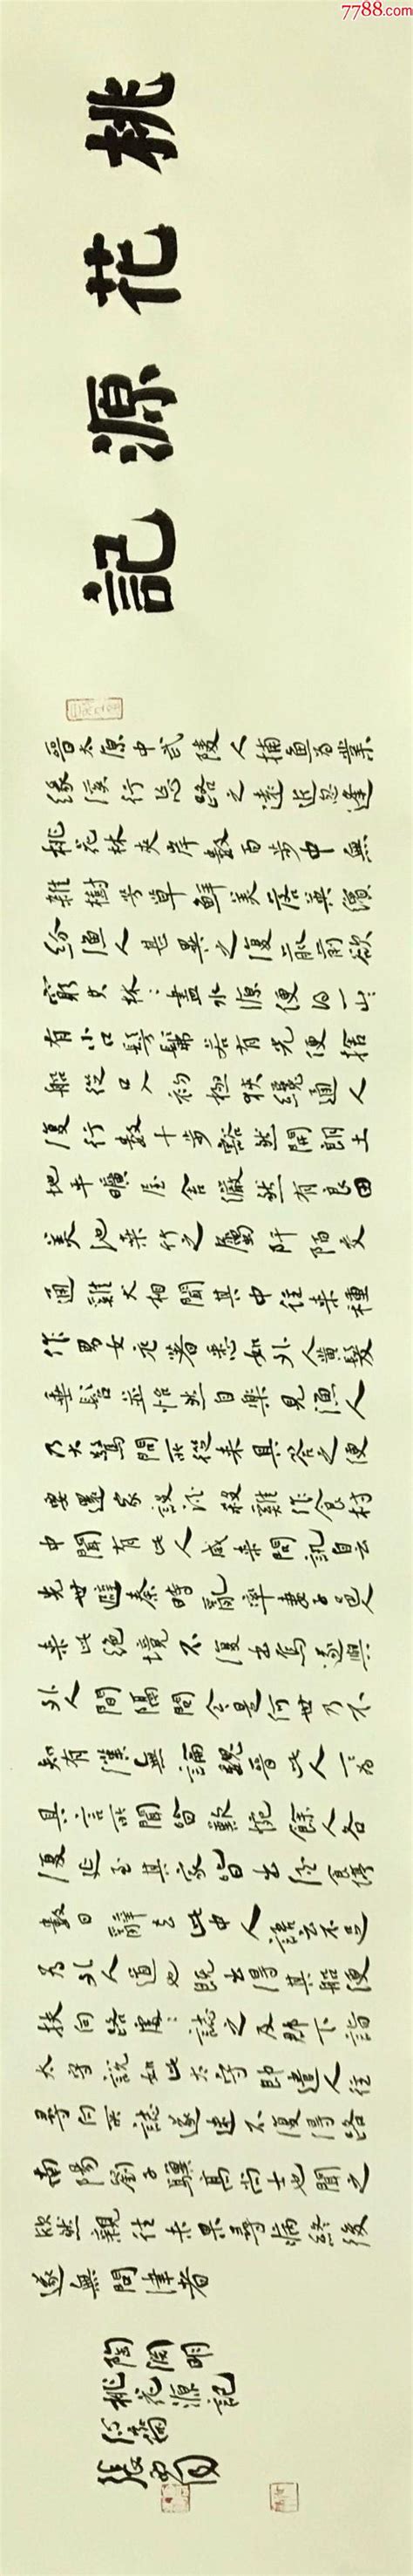 7788.com
桃花源記
晉太原中武陵人捕魚為業
緣溪行忘路之遠近忽逢
桃花林夾岸數百步中無
雜樹芳草鮮美落英繽
紛漁人甚異之復前欲
窮其林:盡水源便得一山:
有小口髣髴若有光便捨
船從口入初極狹纔通人
復行數十步豁然開朗土
地平曠屋舍儼然有良田
美池桑竹之屬阡陌交
通雞犬相聞其中往來種
作男女衣著悉如外人黃髮
垂髫並怡然自樂見漁人
乃大驚問所從來具答之便
要還家設酒殺雞作食村
中聞有此人咸來問訊自云
先世避秦時亂率妻子邑人
來此絕境不復出焉遂與
外人間隔問今是何世乃不
知有漢無論魏晉此人一一為
具言所聞皆歎惋餘人各
復延至其家皆出酒食停
數日辭去此中人語云不足
為外人道也既出得其船便
扶向路處:誌之及郡下詣
太守說如此太守即遣人往
尋向所誌遂迷不復得路
南陽劉子驥高尚士也聞之
欣然親往未果尋病終後
遂無問津者
陶淵明
桃花源記
張